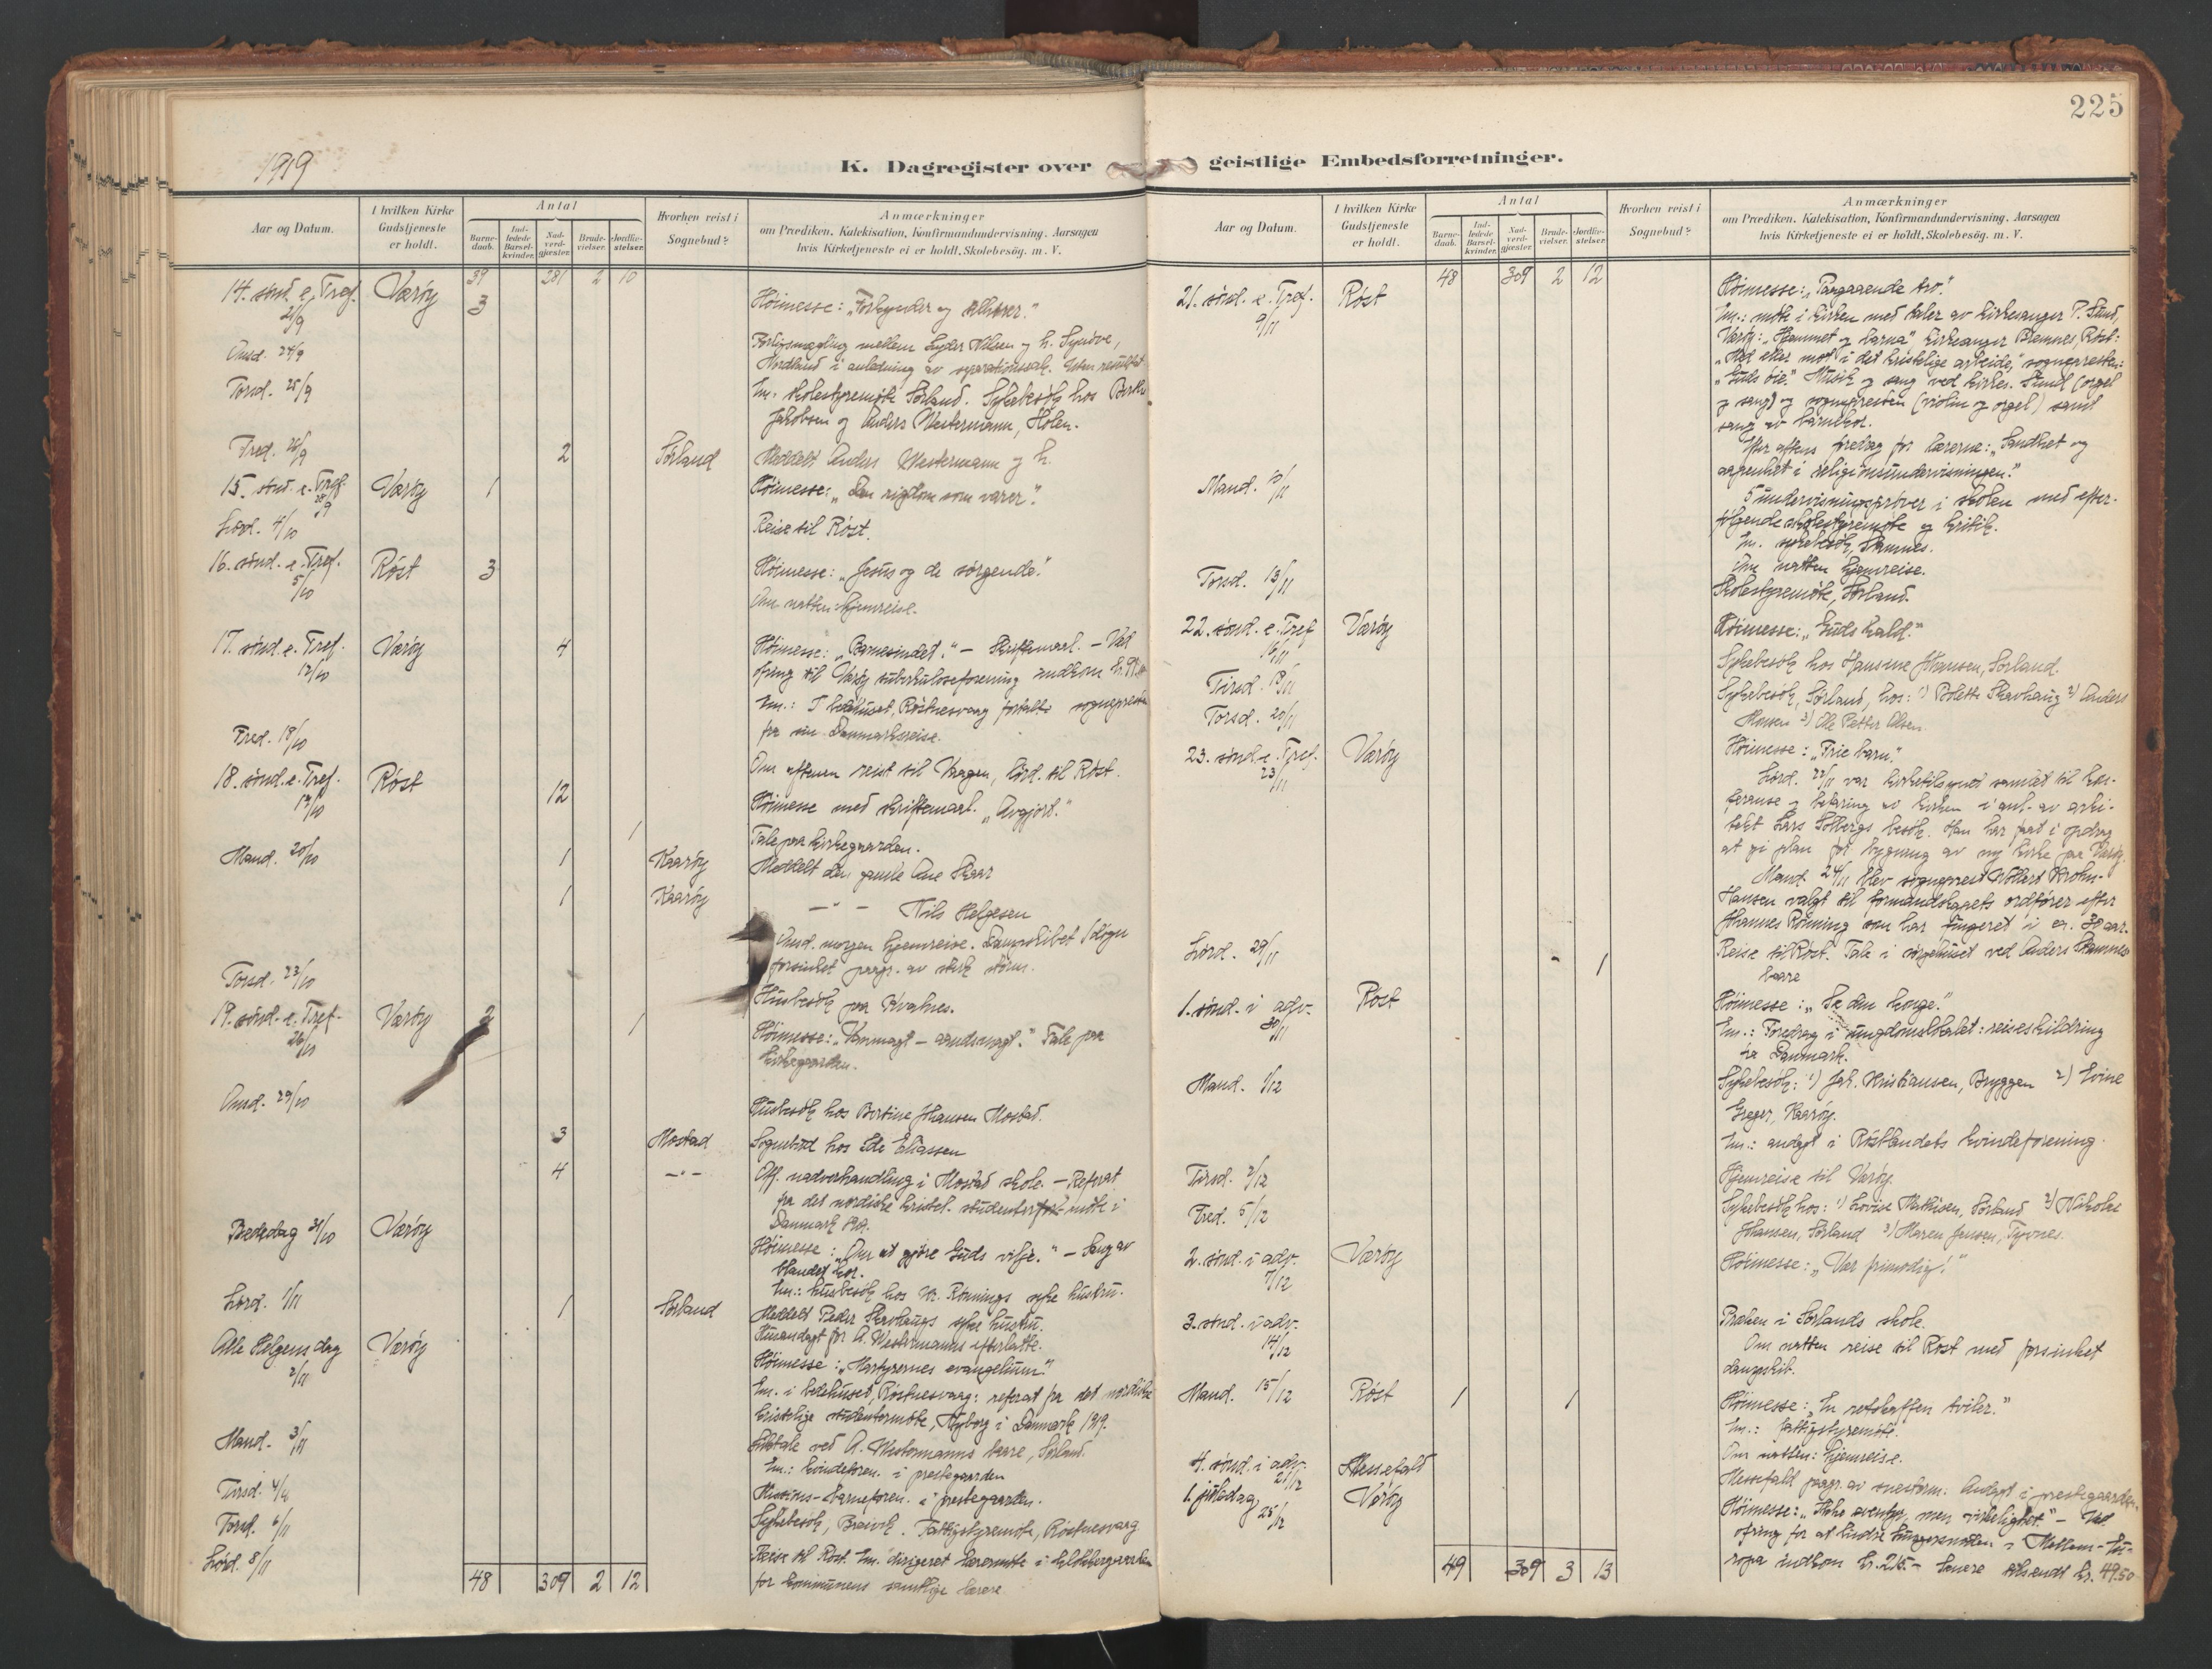 225
1919
K. Dagregister over geistlige Embedsforretninger.
Aar og Datum.
I hvilken Kirke Gudstjeneste er holdt.
Antal
Barne-daab.
Ind-ledede Barsel-kvinder.
Nad-verd-gjæster.
Brude-vielser.
Jordfæ-stelser.
Hvorhen reist i Sognebud?
Anmærkninger
om Prædiken, Katekisation, Konfirmandundervisning. Aarsagen
hvis Kirketjeneste ei er holdt, Skolebesög. m. V.
39 281 2 10
14. sönd. e. Tref. 21/9 Værøy 3 Höimesse: „Forkynder og tilhører."
Onsd. 24/9 Forligsmægling mellem Nilsen og h. Synöve,
Nordland i anledning av separationssak. Uten resultat
Torsd. 25/9 Em. skolestyremöte Sörland. Sykebesök hos
Jakobsen og Anders Westermann, Holen.
Fred. 26/9 2 Sörland Meddelt Anders Westermann og h.
15. sönd. e. Tref. 28/9 Værøy 1 Höimesse: „Den rigdom som varer."
Lörd. 4/10 Reise til Röst.
16. sönd. e. Tref. 5/10 Röst 3 Höimesse: „Jesus og de sörgende."
Om natten hjemreise.
17. sönd. e. Tref. 12/10 Værøy 4 Höimesse: „Barnesindet." – Skriftemaal. – Ved
ofring til Værøy tuberkuloseforening indkom kr.
Em.: I bedehuset, Röstnesvaag fortalte sognepresten
fra sin Danmarksreise.
Fred. 18/10 Om aftenen reist til Vaagen, lörd. til Röst.
18. sönd. e. Tref. 19/10 Röst 12 Höimesse med skriftemaal. „Avgjort."
1 Tale paa kirkegaarden.
Mand. 20/10 1 Kaaröy Meddelt den gamle Ane Skaar
1 Kaaröy –"– Nils Helgesen
Onsd. morgen hjemreise. Dampskibet 1 dögn
forsinket paagr. av sterk storm.
Torsd. 23/10 Husbesök paa Kvalnes.
19. sönd. e. Tref. 26/10 Værøy 2 1 Höimesse: „Vanmagt – aandsmagt." Tale paa
kirkegaarden.
Onsd. 29/10 Husbesök hos Bertine Johansen Mostad.
3 Mostad Sognebud hos Ede Eliassen
4 –"– Off. nadverhandling i Mostad skole. – Referat
fra det nordiske kristel. studentermöte i
Danmark 1919.
Bededag 31/10 Værøy Höimesse: „Om at gjöre Guds vilje." – Sang av
blandet kor.
Em.: husbesök hos Rönnings syke hustru.
Lörd. 1/11 1 Sörland Meddelt Peder Skavhaugs syke hustru.
Husandagt for A. Westermanns efterlatte.
Alle Helgens dag 2/11 Værøy Höimesse: „Martyrernes evangelium."
Em. i bedehuset, Röstnesvaag: referat fra det nordiske
kristelige studentermöte, Nyborg i Danmark 1919.
Mand. 3/11 Liktale ved A. Westermanns baare, Sörland.
Em.: kvindeforen. i prestegaarden
Tirsd. 4/11 Missions-barneforen. i prestegaarden.
Torsd. 6/11 Sykebesök, Breivik. Fattigstyremöte, Röstnesvaag
Lörd. 8/11 Reise til Röst. Em. dirigeret lærermöte i klokkergaarden
for kommunens samtlige lærere
48 309 2 12
Aar og Datum.
I hvilken Kirke Gudstjeneste er holdt.
Antal
Barne-daab.
Ind-ledede Barsel-kvinder.
Nad-verd-gjæster.
Brude-vielser.
Jordfæ-stelser.
Hvorhen reist i Sognebud?
Anmærkninger
om Prædiken, Katekisation, Konfirmandundervisning. Aarsagen
hvis Kirketjeneste ei er holdt, Skolebesög. m. V.
48 309 2 12
21. sönd. e. Tref. 9/11 Röst Höimesse: „Paagaaende tro."
Em.: möte i kirken med taler av kirkesanger P. Stund,
Værøy: „Hjemmet og barna" kirkesanger Bremnes, Röst:
„Med eller mot i det kristelige arbeide," sognepresten:
„Guds öie." Musik og sang ved kirkes. Stund (orgel
og sang) og sognepresten (violin og orgel) samt
sang av barnekor.
Efter aftens foredrag for lærerne: „Sandhet og
aapenhet i religionsundervisningen."
Mand. 10/11 5 undervisningspröver i skolen med efter-
fölgende skolestyremöte og kritik.
Em. sykebesök, Stamnes.
Om natten hjemreise.
Torsd. 13/11 Skolestyremöte, Sörland.
22. sönd. e. Tref. 16/11 Værøy Höimesse: „Guds kald."
Tirsd. 18/11 Sykebesök hos Hansine Johansen, Sörland.
Torsd. 20/11 Sykebesök, Sörland, hos: 1) Bolette Skavhaug 2) Anders
Monsen 3) Ole Petter Olsen
23. sönd. e. Tref. 23/11 Værøy Höimesse: „Frie barn."
Lörd. 22/11 var kirketilsynet samlet til kon-
feranse og befaring av kirken i anl. av arki-
tekt Lars Solbergs besök. Han har faat i opdrag
at gi plan for bygning av ny kirke paa Værøy.
Mand. 24/11 blev sogneprest Wollert Krohn-
Hansen valgt til formandskapets ordförer efter
Johannes Rönning som har fungeret i ca. 30 aar.
Lörd. 29/11 1 Reise til Röst. Tale i sörgehuset ved Anders Stamnes
baare
1. sönd. i adv. 30/11 Röst Höimesse: „Se din konge."
Em.: Foredrag i ungdomslokalet: reiseskildring
fra Danmark.
Mand. 1/12 Sykebesök: 1) Joh. Kristiansen, Bryggen 2) Evine
Greger, Kaaröy.
Em.: andagt i Röstlandets kvindeforening.
Tirsd. 2/12 Hjemreise til Værøy.
Fred. 5/12 Sykebesök hos: 1) Lovise Mathisen, Sörland 2) Nikoline
Johansen, Sörland 3) Maren Jensen, Tyvnes.
2. sönd. i adv. 7/12 Værøy Höimesse: „Vær frimodig!"
3. sönd. i adv. 14/12 Præken i Sörlands skole.
Om natten reise til Röst med forsinket
dampskib.
Mand. 15/12 Röst 1 1 Höimesse: „En retskaffen tviler."
Em.: fattigstyremöte.
Om natten: hjemreise.
4. sönd. i adv. 21/12 Messefald Messefald paagr. av snestorm. Andagt i prestegaarden.
1. juledag 25/12 Værøy Höimesse: „ikke eventyr, men virkelighet." – Ved
ofring for at lindre hungersnöden i Mellem-Eu-
ropa indkom kr. 215.– Senere tilsendt kr. 49.50
49 309 3 13